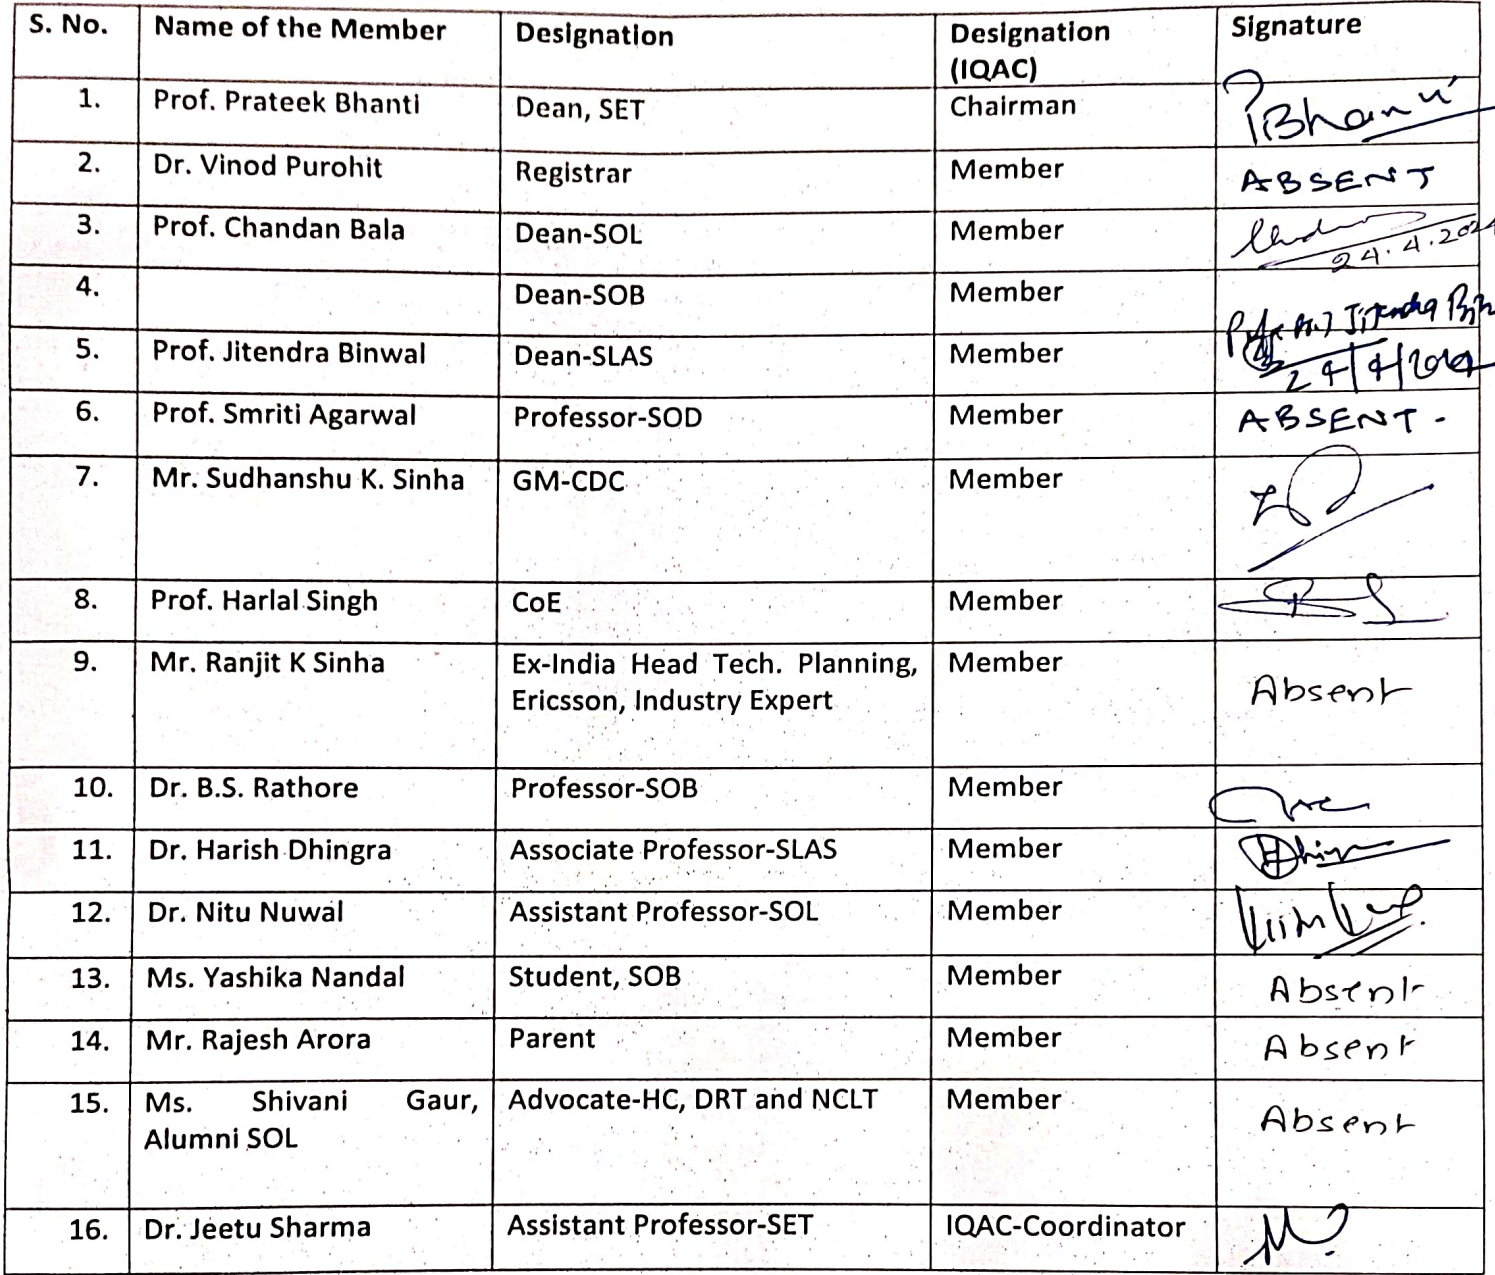 S. No. Name of the Member Designation Designation (IQAC) Signature
1. Prof. Prateek Bhanti Dean, SET Chairman PBhanti
2. Dr. Vinod Purohit Registrar Member ABSENT
3. Prof. Chandan Bala Dean-SOL Member
24.4.2024
4. Dean-SOB Member
5. Prof. Jitendra Binwal Dean-SLAS Member Jitendra
24/4/2024
6. Prof. Smriti Agarwal Professor-SOD Member ABSENT.
7. Mr. Sudhanshu K. Sinha GM-CDC Member
8. Prof. Harlal Singh CoE Member
9. Mr. Ranjit K Sinha Ex-India Head Tech. Planning, Member Absent
Ericsson, Industry Expert
10. Dr. B.S. Rathore Professor-SOB Member
11. Dr. Harish Dhingra Associate Professor-SLAS Member
12. Dr. Nitu Nuwal Assistant Professor-SOL Member
13. Ms. Yashika Nandal Student, SOB Member Absent
14. Mr. Rajesh Arora Parent Member Absent
15. Ms. Shivani Gaur, Advocate-HC, DRT and NCLT Member Absent
Alumni SOL
16. Dr. Jeetu Sharma Assistant Professor-SET IQAC-Coordinator